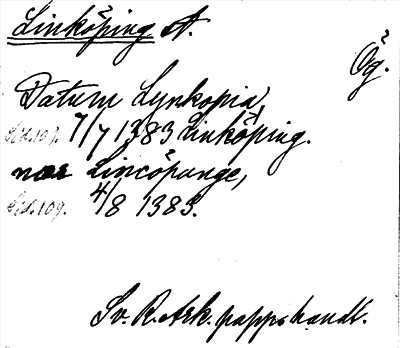 Linköping st.
Ög.
Datum Lynkopia,
Sid. 109. 7/7 1383 Linköping.
nær Lincöpunge,
Sid. 109. 4/8 1383.
Sv. R. Ark. pappershandl.